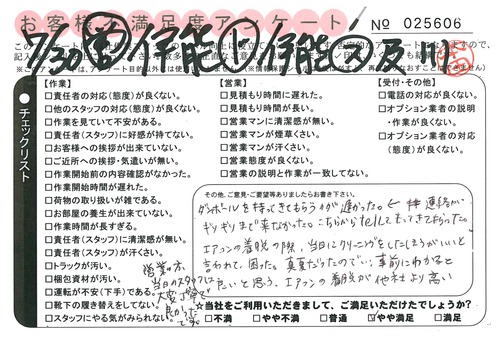 お客様ご満足度アンケート
No 025606
チェックリスト
【作業】
□責任者の対応(態度)が良くない。
□他のスタッフの対応(態度)が良くない。
□作業を見ていて不安がある。
□責任者(スタッフ)に好感が持てない。
□お客様への挨拶が出来ていない。
□ご近所への挨拶・気遣いが無い。
□作業開始前の内容確認がなかった。
□作業開始時間が遅れた。
□荷物の取り扱いが雑である。
□お部屋の養生が出来ていない。
□作業時間が長すぎる。
□責任者(スタッフ)に清潔感が無い。
□責任者(スタッフ)が汗くさい。
□トラックが汚い。
□梱包資材が汚い。
□運転が不安(下手)である。
□靴下の履き替えをしてない。
□スタッフにやる気がみられない。
【営業】
□見積もり時間に遅れた。
□見積もり時間が長い。
□営業マンに清潔感が無い。
□営業マンが煙草くさい。
□営業マンが汗くさい。
□営業態度が良くない。
□営業の説明と作業が一致してない。
【受付・その他】
□電話の対応が良くない。
□オプション業者の説明
・作業が良くない。
□オプション業者の対応
(態度)が良くない。
その他、ご意見・ご要望等ありましたらお書き下さい。
ダンボールを持ってきてもらうのが遅かった。
ギリギリまで来なかった。こちらからtelしてもってきてもらった。
エアコンの着脱の際、当日にクリーニングをしたほうがいいと
言われて、困った。真夏だったので…事前にわかると
良いと思う。エアコンの着脱が他社より高い
営業の方、
当日のスタッフは
大変丁寧で
良かった
です
☆当社をご利用いただきまして、ご満足いただけたでしょうか?
□不満 □やや不満 □普通 ☑やや満足 □満足